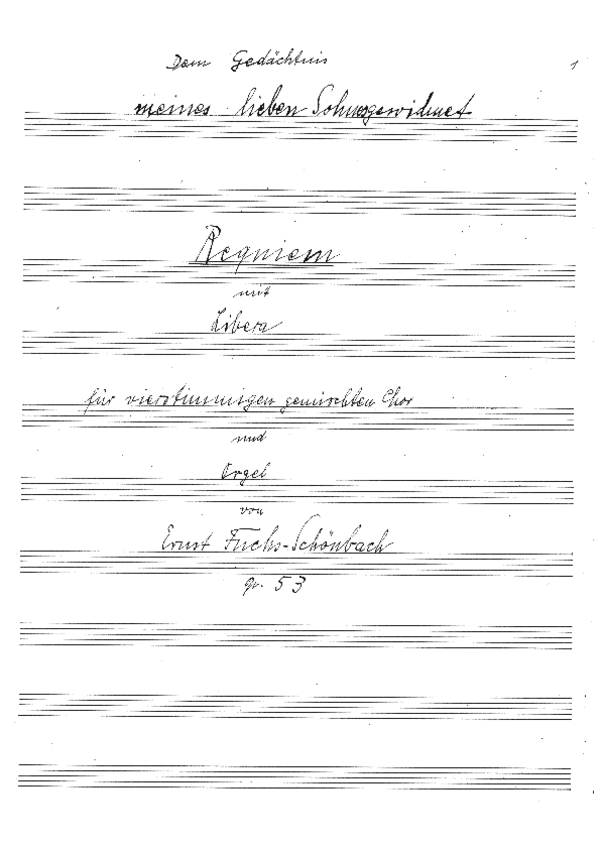 Dem Gedächtnis
1
meines lieben Sohnes gewidmet
Requiem
mit
Libera
für vierstimmigen gemischten Chor
und
Orgel
von
Ernst Fuchs-Schönbach
op. 53